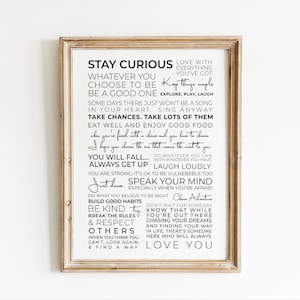 STAY CURIOUS
LOVE WITH
EVERYTHING
YOU'VE GOT
WHATEVER YOU
CHOOSE TO BE
BE A GOOD ONE
Keep things simple
EXPLORE, PLAY, LAUGH
SOME DAYS THERE JUST WON'T BE A SONG
IN YOUR HEART. SING ANYWAY
TAKE CHANCES. TAKE LOTS OF THEM
EAT WELL AND ENJOY GOOD FOOD
when you're faced with a choice and you have to choose
I hope you choose the one that means the most to you
YOU WILL FALL...
ALWAYS GET UP
DO WHATEVER YOU CAN
WITH WHATEVER YOU HAVE
LAUGH LOUDLY
YOU ARE STRONG, IT'S OK TO BE VULNEREBLE TOO
Just dance
SPEAK YOUR MIND
ESPECIALLY WHEN YOU'RE AFRAID
DO WHAT YOU BELIEVE TO BE RIGHT
BUILD GOOD HABITS
BE KIND
BREAK THE RULES
& RESPECT
OTHERS
WHEN YOU THINK YOU
CAN'T, LOOK AGAIN,
& FIND A WAY
DON'T WAIT FOR SOMEDAY
KNOW THAT WHILE
YOU'RE OUT THERE
CHASING YOUR DREAMS
AND FINDING YOUR WAY
IN LIFE, THERE'S SOMEONE
HERE WHO WILL ALWAYS
LOVE YOU